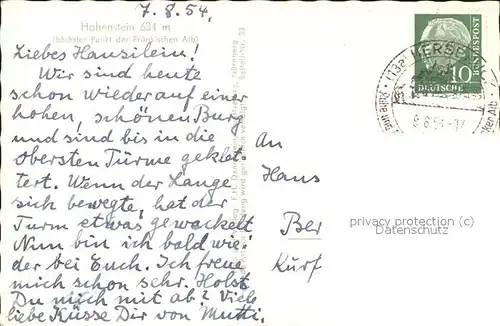 7.8.54.
Hohenstein 634 m
(höchster Punkt der Fränkischen Alb)
Liebes Hansilein!
Wir sind heute
schon wieder auf einer
hohen, schönen Burg
und sind bis in die
obersten Türme geklet-
tert. Wenn der Lange
sich bewegte, hat der
Turm etwas gewackelt
Nun bin ich bald wie-
der bei Euch. Ich freue
mich schon sehr. Holst
Du mich mit ab? Viele
liebe Küsse Dir von Mutti.
An
Hans
Ber
Kurf
privacy protection (c)
Datenschutz
10
DEUTSCHE
BUNDESPOST
(13a) HERSB